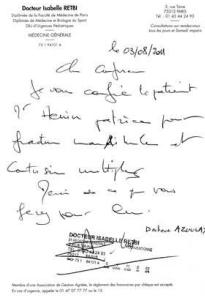 Docteur Isabelle RETBI
Diplômée de la Faculté de Médecine de Paris
Diplômée de Médecine et Biologie du Sport
DIU d'Urgences Pédiatriques
MÉDECINE GÉNÉRALE
75 1
75012 PARIS
Tél : 01 43 44 24 93
Consultations sur rendez-vous
tous les jours et Samedi matin
le 03/08/2011
Cher confrère
Je vous confie le patient
Mr Henin patrice pour
fracture mandibule et
contusion multiples
Merci de ce que vous
ferez pour lui
Docteur AZOULAY
DOCTEUR ISABELLE RETBI
Membre d'une Association de Gestion Agréée, le règlement des honoraires par chèque est accepté.
En cas d'urgence, appeler le 01 47 07 77 77 ou le 15.